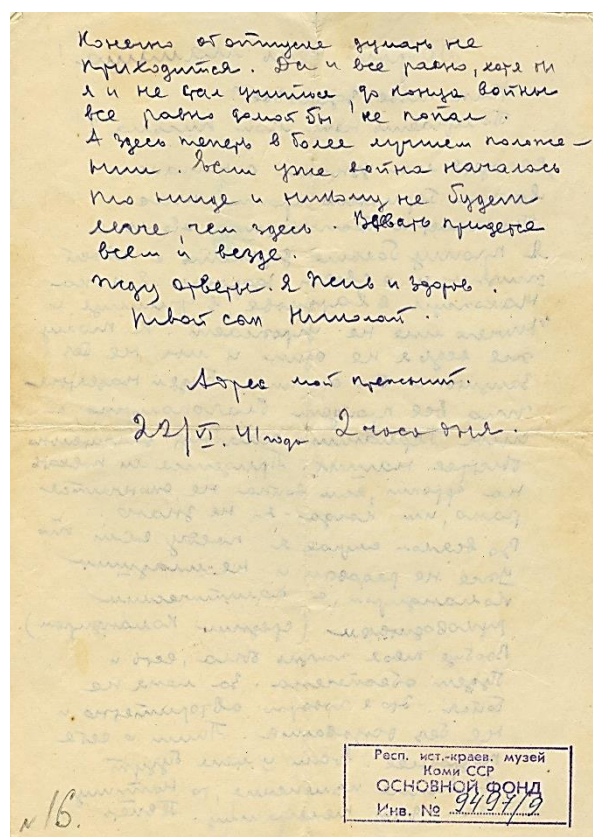 Конечно об отпуске думать не
приходится. Да и все равно, хотя бы
я и не стал учиться, до конца войны
все равно домой бы не попал.
А здесь теперь в более лучшем положе-
нии. Если уже война началось
то нигде и никому не будет
легче, чем здесь. Воевать придется
всем и везде.
Жду ответы. Я жив и здоров.
Твой сын Николай.
Адрес мой прежний.
22/VI. 41 года 2 часа дня.
Респ. ист.-краев. музей
Коми ССР
ОСНОВНОЙ ФОНД
Инв. № 9497/9
№16.